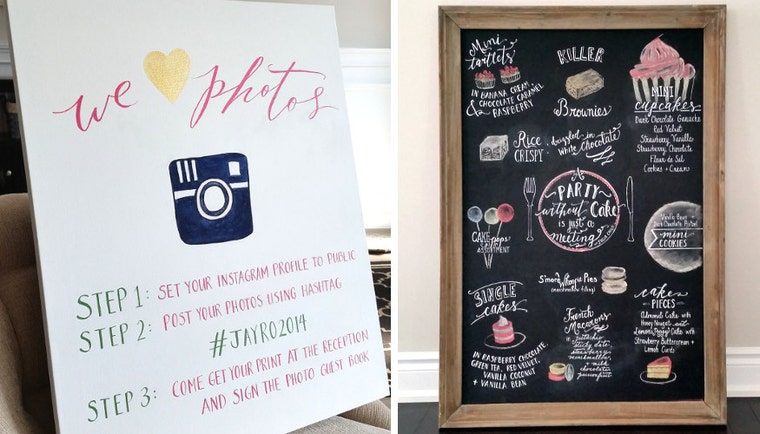 we photos
STEP 1: SET YOUR INSTAGRAM PROFILE TO PUBLIC
STEP 2: POST YOUR PHOTOS USING HASHTAG
#JAYRO2014
STEP 3: COME GET YOUR PRINT AT THE RECEPTION
AND SIGN THE PHOTO GUEST BOOK
Mini
tartlets
IN BANANA CREAM
CHOCOLATE CARAMEL
+ RASPBERRY
KILLER
Brownies
MINI
cupcakes
Dark Chocolate Ganache
Red Velvet
Strawberry Vanilla
Strawberry Chocolate
Fleur de Sel
Cookies + Cream
RICE
CRISPY
drizzled in
White Chocolate
A
PARTY
without Cake
is just a
meeting
CAKE pops
ASSORTMENT
Vanilla Bean +
Dark Chocolate Pretzel
mini
COOKIES
S'mores Whoopie Pies
(marshmallow filling)
SINGLE
Cakes
IN RASPBERRY CHOCOLATE,
GREEN TEA, RED VELVET,
VANILLA COCONUT
+ VANILLA BEAN
French
Macarons
in pistachio
sticky date
strawberry
marshmallow
+ milk
chocolate
Cakes
PIECES
Almond Cake with
Honey Nougat and
Lemon Poppy Cake with
Strawberry Buttercream +
Lemon Curds